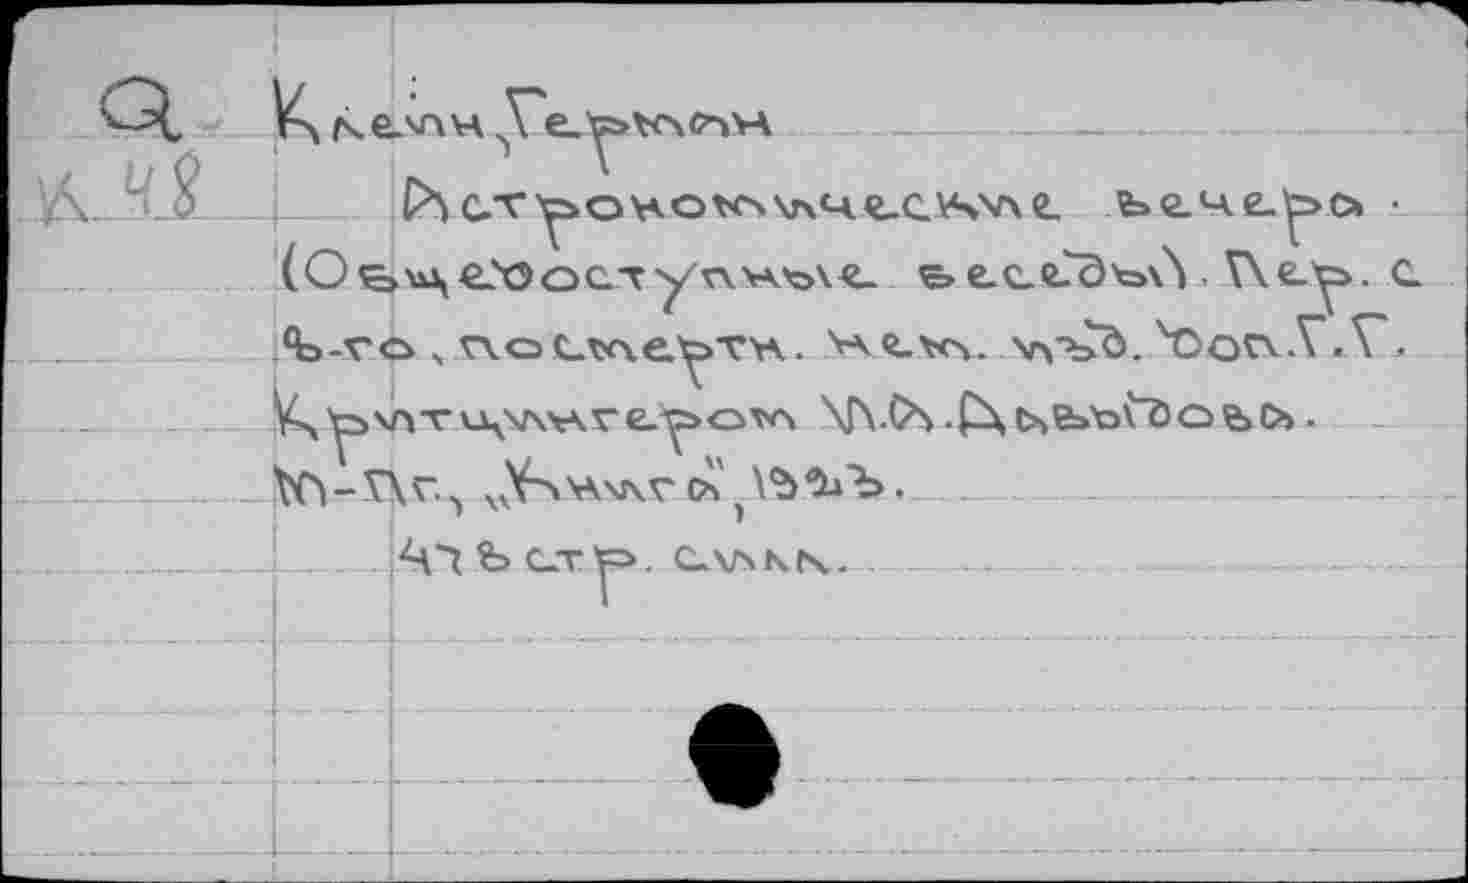 Q К 48
Клейн, Герман
Астрономические вечера.
(Общедоступные беседы). Пер. с
3-го, посмертн. нем. изд. доп. Г.Г.
Критцингером И.А. Давыдова.
М-Пг., „Книга", 1923.
47 в стр. с илл.